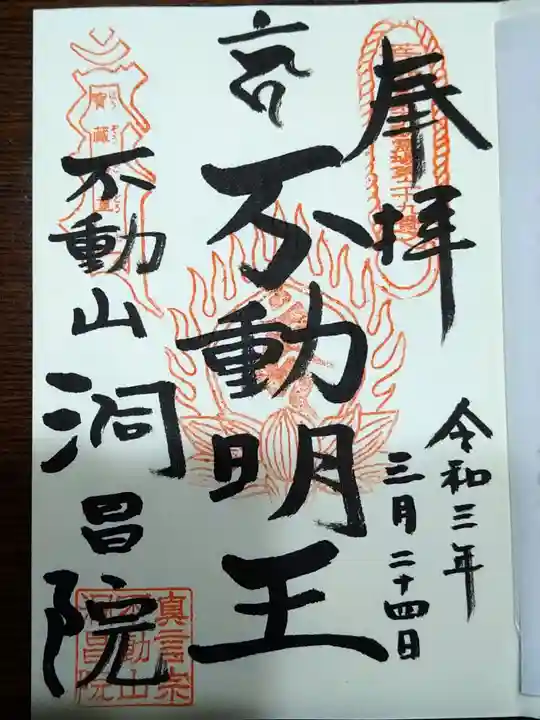 奉拝
令和三年
三月二十四日
不動明王
不動山
洞昌院
真言宗
不動山
洞昌院